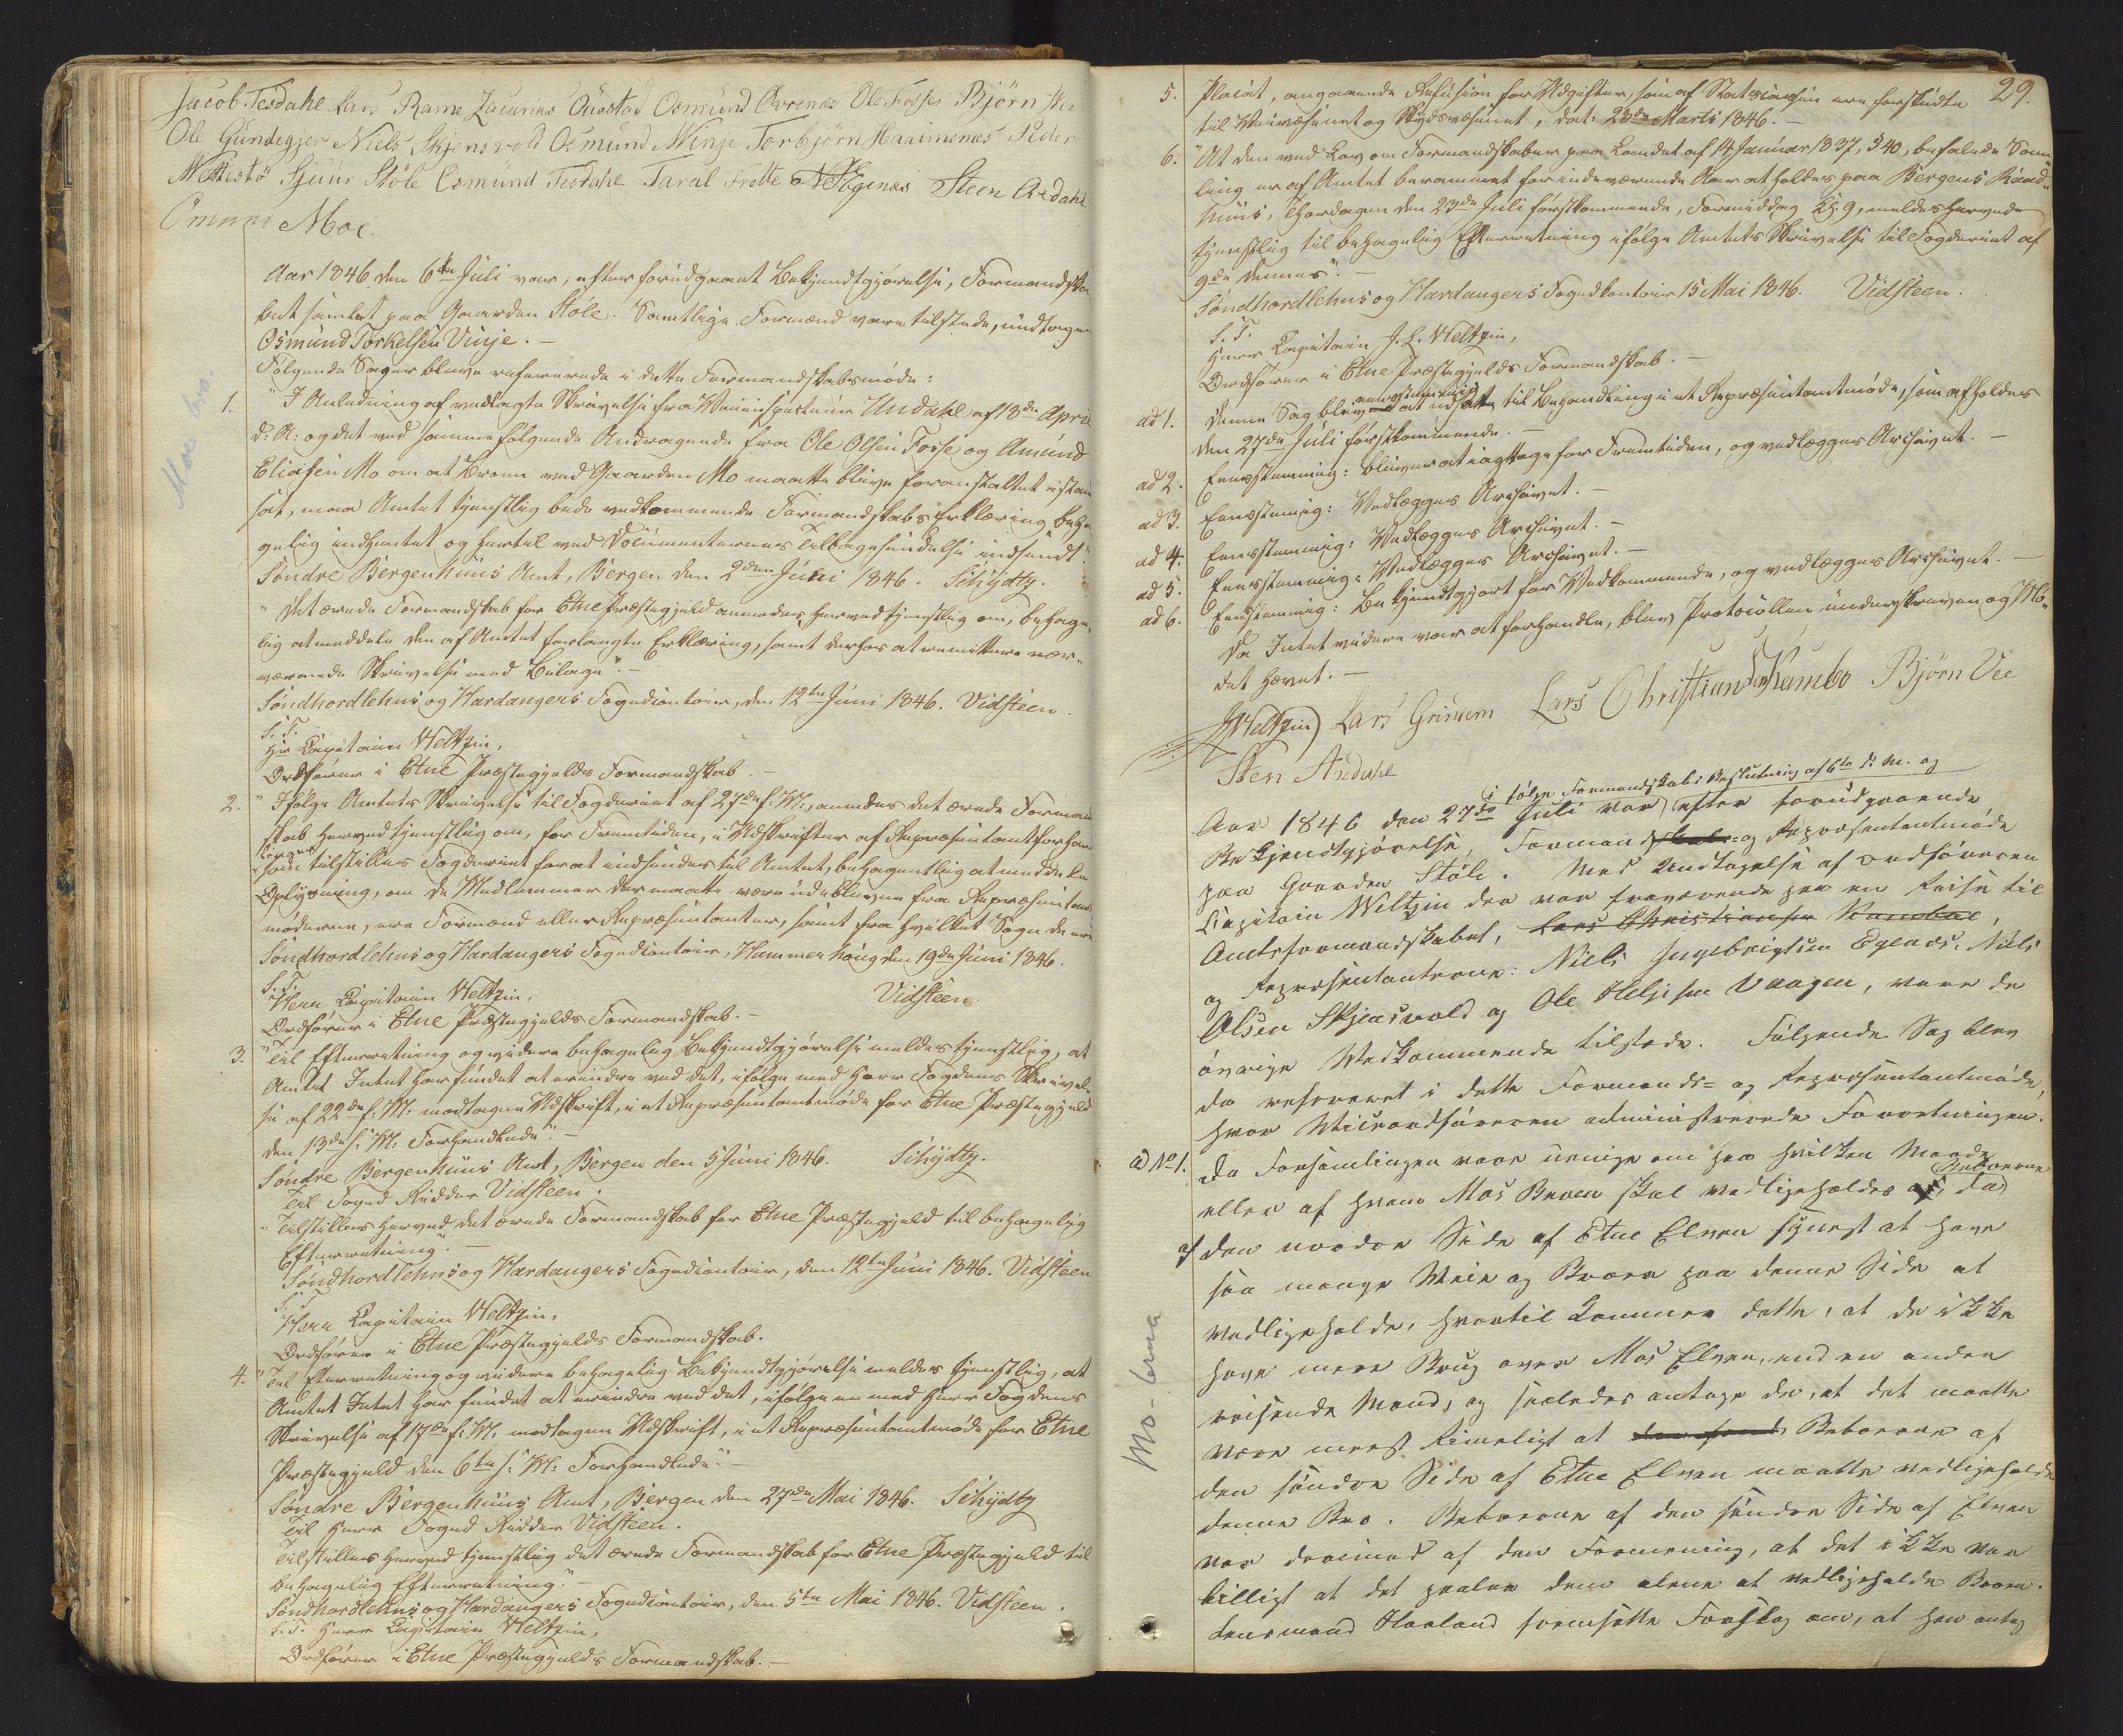 Jacob Tesdahl Lars Rame Zacarias Qvestad Osmund Övrenæs Ole Fosse Björn
Ole Gundegjer Niels Skjensvold Osmund Winje Torbjörn Haaimsnæs Peder
Mettestö Sjuur Støle Osmund Tesdahl Taral Frette N Egenæs Steen Ardahl
Omund Moe.
Aar 1846 den 6te Juli var, efter forudgaaet Bekjendtgjörelse, Formandska
bet samlet paa Gaarden Støle. Samtlige Formænd vare tilstede, undtagen
Osmund Torkelsen Vinje.-
Følgende Sager bleve refererede i dette Formandskabsmöde:
1. "I Anledning af vedlagte Skrivelse fra Veiinspecteur Undahl af 18de April
d: A: og det ved samme følgende Andragende fra Ole Olsen Fosse og Amund
Eliasen Mo om at Broen ved Gaarden Mo maatte blive foranstaltet istand
sat, maa Amtet tjenstlig bede vedkommende Formandskabs Erklæring beha
gelig indhentet og hertil ved Documenternes Tilbagesendelse indsendt."
Søndre Bergenhuus Amt, Bergen den 2den Juni 1846. Schydtz.
"Det ærede Formandskab for Etne Præstegjeld anmodes herved tjenstlig om, behage-
lig at meddele den af Amtet forlangte Erklæring, samt derhos at remittere nær-
værende Skrivelse med Bilage".-
Søndhordlehns og Hardangers Fogedcontoir, den 12te Juni 1846. Vidsteen.
S. T.
Hr Capitain Weltzin,
Ordfører i Etne Præstegjelds Formandskab.-
2. "Ifølge Amtets Skrivelse til Fogderiet af 27de f: M:, anmodes det ærede Formand
skab herved tjenstlig om, for Fremtiden, i Udskrifter af Repræsentantforhand
linger
som tilstilles Fogderiet for at indsendes til Amtet, behageligt at meddele
Oplysning, om de Medlemmer der maatte være udeblevne fra Repræsentant
møderne, ere Formænd eller Repræsentanter, samt fra hvilket Sogn de ere
Søndhordlehns og Hardangers Fogedcontoir, Hammerhaug den 19de Juni 1846.
S. T.
Herr Capitain Weltzin, Vidsteen
Ordfører i Etne Præstegjelds Formandskab.-
3. "Til Efterretning og videre behagelig Bekjendtgjörelse meldes tjenstlig, at
Amtet Intet har fundet at erindre ved det, ifølge med Herr Fogdens Skrivel
se af 22de f: M: modtagen Udskrift, i et Repræsentantmøde for Etne Præstegjeld
den 13de f: M: Forhandlede".-
Søndre Bergenhuus Amt, Bergen den 5 Juni 1846. Schydtz.
Til Foged Ridder Vidsteen.
"Tilstilles herved det ærede Formandskab for Etne Præstegjeld til behagelig
Efterretning".-
Søndhordlehns og Hardangers Fogedcontoir, den 12te Juni 1846. Vidsteen
S. T.
Herr Capitain Weltzin,
Ordfører i Etne Præstegjelds Formandskab.
4. "Til Efterretning og videre behagelig Bekjendtgjörelse meldes tjenstlig, at
Amtet Intet har fundet at erindre ved det, ifølge en med Herr Fogdens
Skrivelse af 17de f: M: modtagen Udskrift, i et Repræsentantmøde for Etne
Præstegjeld den 6te f: M: Forhandlede".-
Søndre Bergenhuus Amt, Bergen den 27de Mai 1846. Schydtz
Til Herr Foged Ridder Vidsteen.
Tilstilles herved tjenstlig det ærede Formandskab for Etne Præstegjeld til
behagelig Efterretning".-
Søndhordlehns og Hardangers Fogedcontoir, den 5te Mai 1846. Vidsteen.
S. T. Herr Capitain Weltzin,
Ordfører i Etne Præstegjelds Formandskab.-
Moe bro.
29.
5. Placat, angaaende Refusion for Udgifter, som af Statscassen ere forskudte
til Veivæsenet og Skydsvæsenet, dat: 23de Marts 1846.-
6. "At den ved Lov om Formandskaber paa Landet af 14 Januar 1837, § 40, befalede Sam-
ling er af Amtet berammet for indeværende Aar at holdes paa Bergens Raad-
huus, Thorsdagen den 23de Juli førstkommende, Formiddag Kl. 9, meldes herved
tjenstlig til behagelig Efterretning ifølge Amtets Skrivelse til Fogderiet af
9de dennes".-
Søndhordlehns og Hardangers Fogedkontoir 15 Mai 1846. Vidsteen.
S. T.
Herr Capitain J. L. Weltzin,
Ordfører i Etne Præstegjelds Formandskab.-
ad 1. Denne Sag blev eenstemmig at udsætte til Behandling i et Repræsentantmøde, som afholdes
den 27de Juli førstkommende.-
ad 2. Eenstemmig: bliver at iagttage for Fremtiden, og vedlægges Archivet.-
ad 3. Eenstemmig: Vedlægges Archivet.-
ad 4. Eenstemmig: Vedlægges Archivet.-
ad 5. Eenstemmig: Vedlægges Archivet.-
ad 6. Eenstemmig: Bekjendtgjort for Vedkommende, og vedlægges Archivet.-
Da Intet videre var at forhandle, blev Protocollen underskreven og Mö-
det hævet.-
JWeltzin Lars Grindem Lars Christiansen Kambo Björn Vee
Sten Ardahl
i følge Formandskabs Beslutning af 6te d: M. og
Aar 1846 den 27de Juli var efter forudgaaende
Bekjendtgjørelse, Formandskabs- og Repræsentantmøde
paa Gaarden Støle. Med Undtagelse af Ordføreren
Capitain Weltzin der var fraværende paa en Reise til
Amtsformandskabet, Lars Christiansen Kambae,
og Repræsentanterne: Niels Ingebrigtsen Egenæs, Niels
Olsen Skjensvold og Ole Heljesen Vaagen, vare de
øvrige Vedkommende tilstede. Følgende Sag blev
da refereret i dette Formands- og Repræsentantmøde,
hvor Viceordføreren administrerede Forretningen.
ad No 1. Da Forsamlingen vare uenige om paa hvilken Maade
eller af hvem Mos Broen skal vedligeholdes, da Beboerne
af den nordre Side af Etne Elven synest at have
saa mange Veie og Broer paa denne Side at
vedligeholde, hvortil kommer dette, at de ikke
have mere Brug over Mos Elven, end en anden
reisende Mand, og saaledes antage de, at det maatte
være meest Rimeligt at Beboerne af
den søndre Side af Etne Elven maatte vedligeholde
denne Bro. Beboerne af den søndre Side af Elven
var derimod af den Formening, at det ikke var
billigt at det paalæ dem alene at vedligeholde Broen.
Lensmand Haaland fremsatte Forslag om, at han antog
Mo-brua